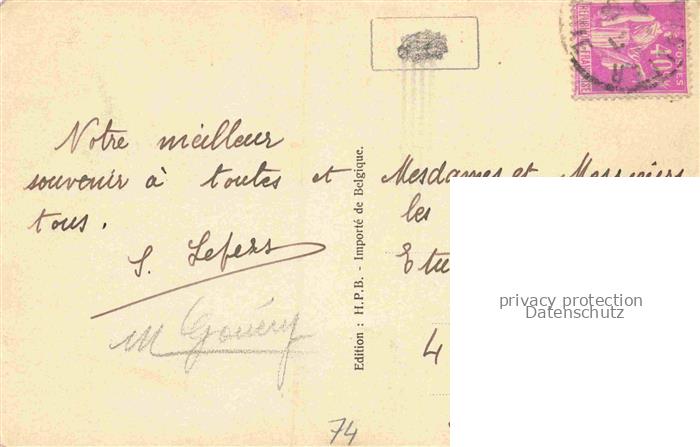 Notre meilleur
souvenir à toutes et
tous.
S. Lefers
M Gouéry
74
Edition : H.P.B. - Importé de Belgique.
40
Mesdames et Messieurs
les
Etu
4
privacy protection
Datenschutz